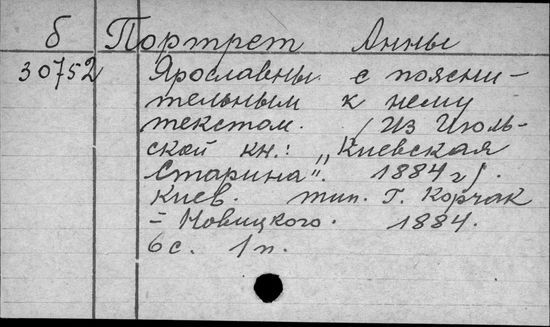 б Портрет Анны
30752 Ярославны с поясни-
тельным к нему
текстом. /Из Июль-
ской кн.: „Киевская
Старина". 1884 г/.
Киев. тип. Г. Корчак
- Новицкого. 1884.
6 с. 1 п.